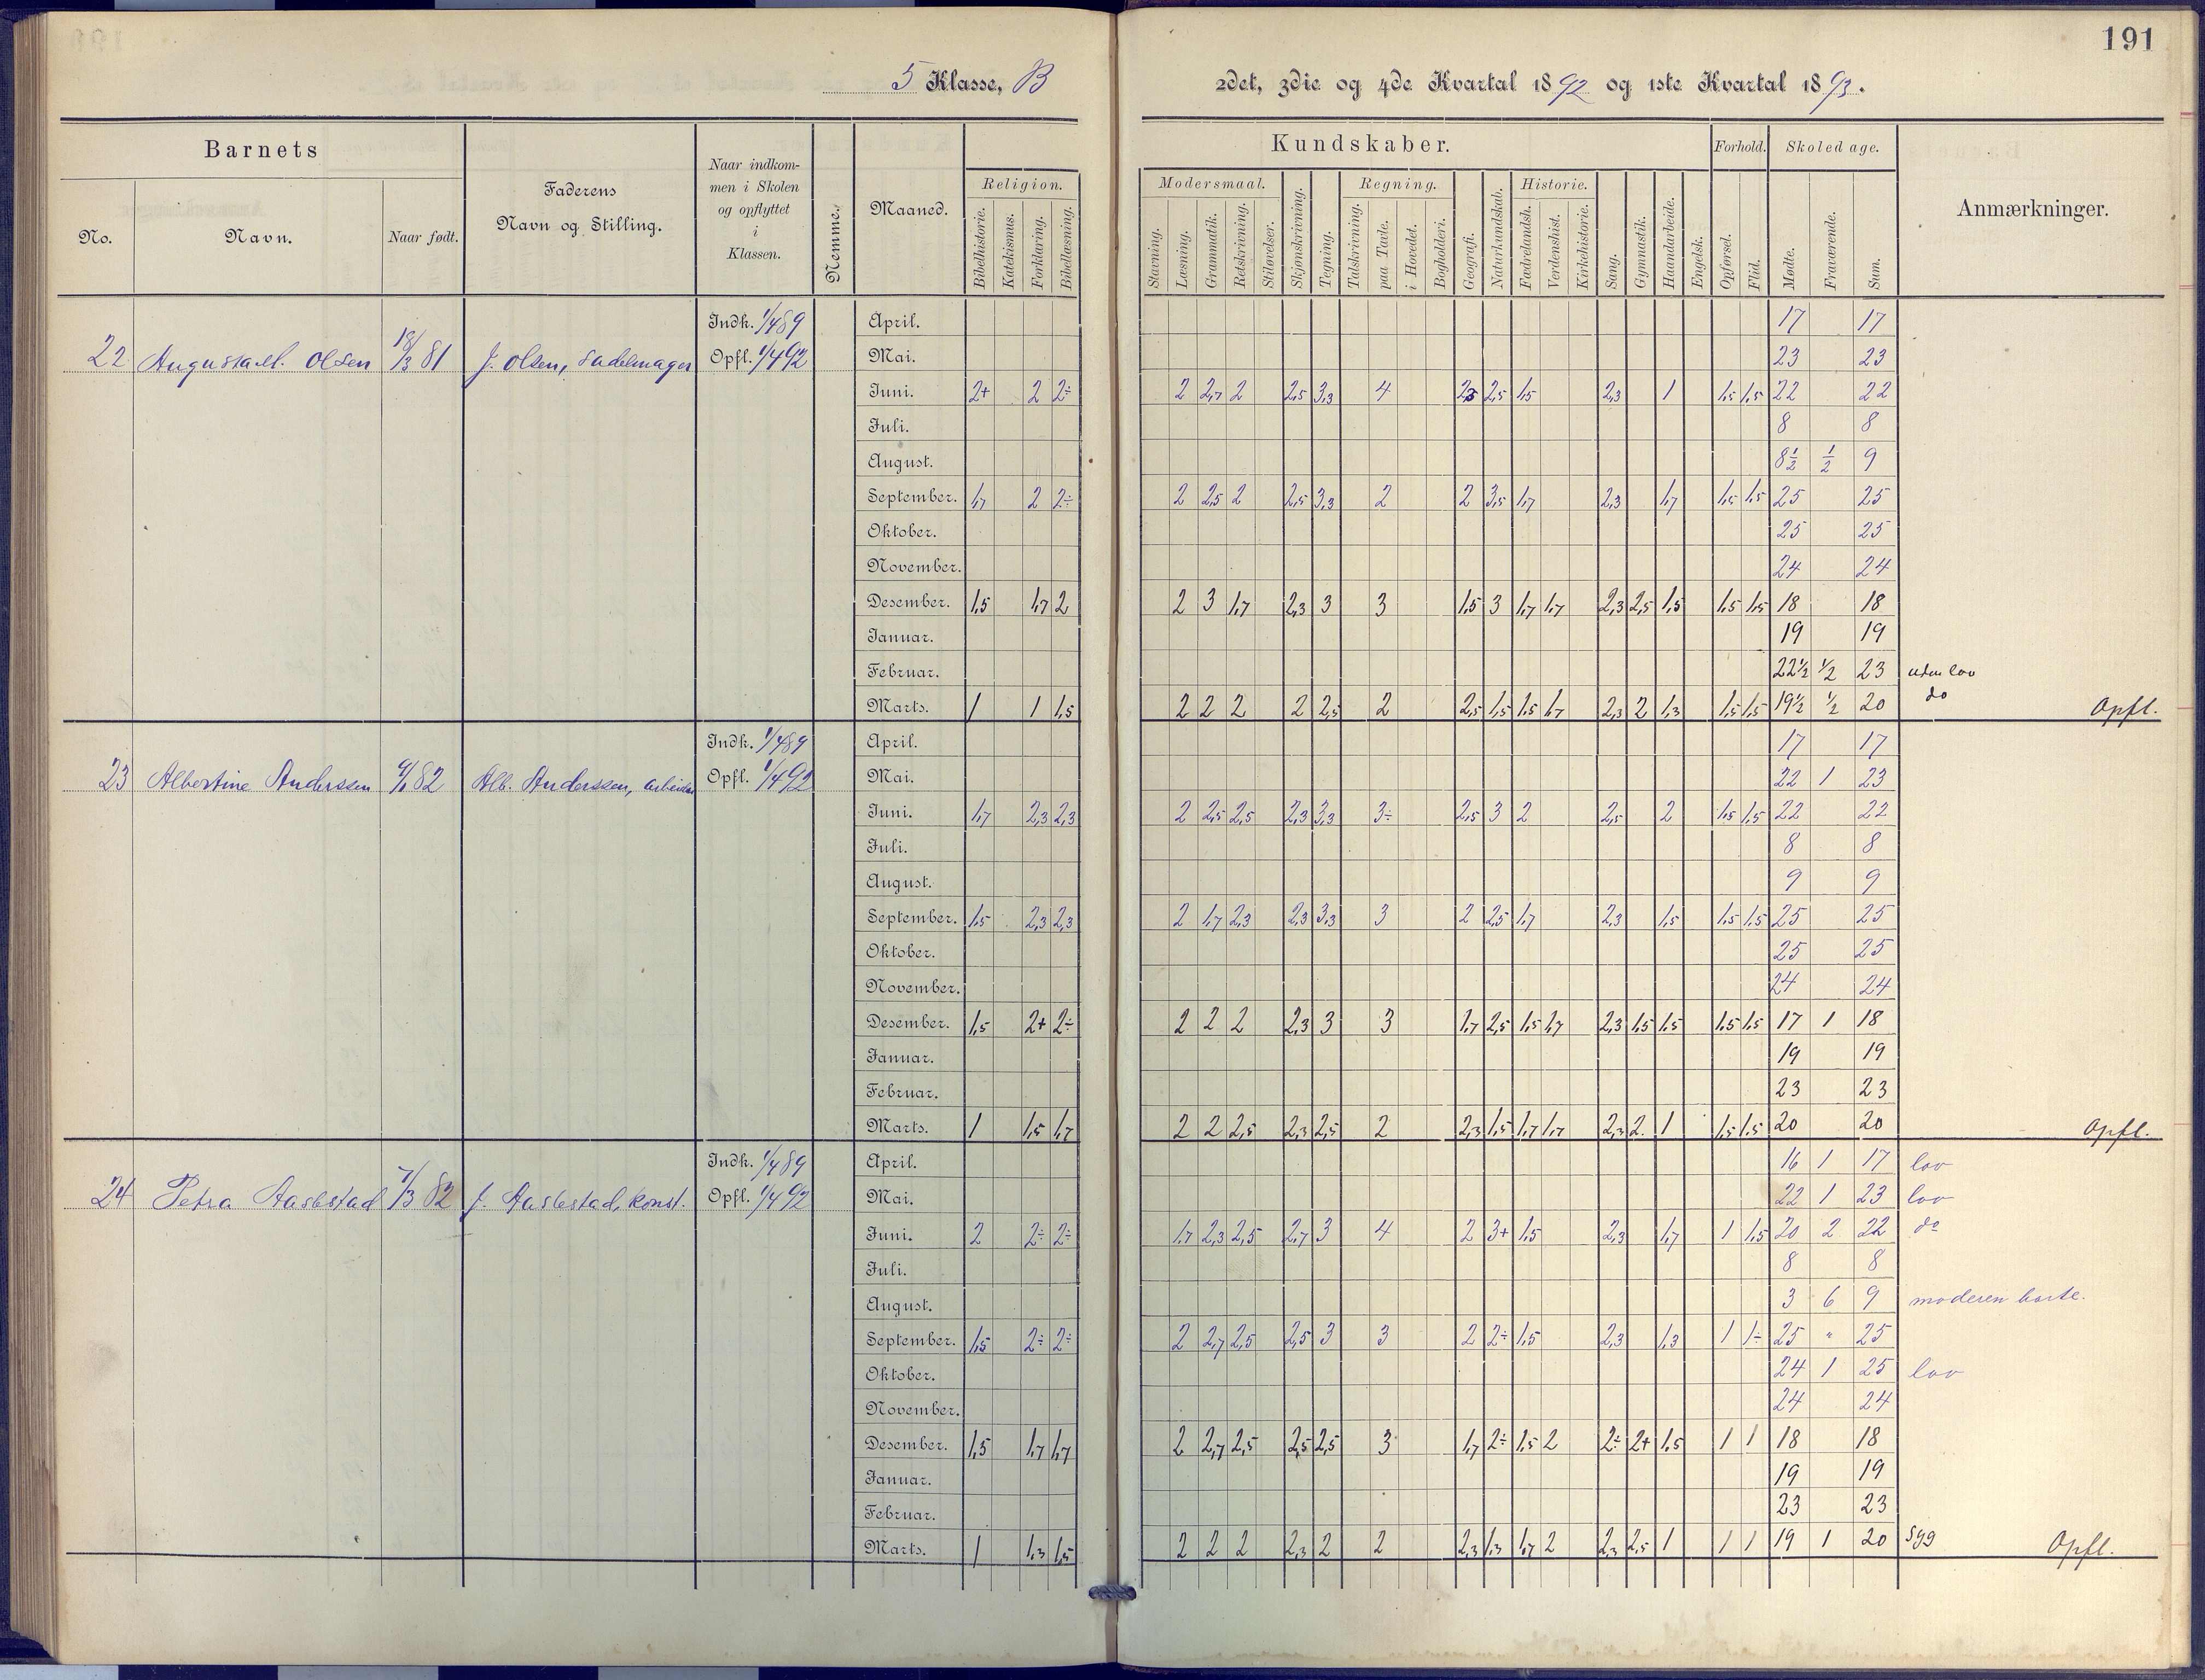 191
5 Klasse, B 2det, 3die og 4de Kvartal 1892 og 1ste Kvartal 1893.
Barnets
No. Navn. Naar født.
Faderens
Navn og Stilling.
Naar indkom-
men i Skolen
og opflyttet
i
Klassen.
Nemme.
Maaned.
Kundskaber.
Religion.
Bibelhistorie. Katekismus. Forklaring. Bibellæsning.
Modersmaal.
Stavning. Læsning. Grammatik. Retskrivning. Stiløvelser.
Skjønskrivning. Tegning.
Regning.
Talskrivning. paa Tavle. i Hovedet. Bogholderi.
Geografi. Naturkundskab.
Historie.
Fædrelandsh. Verdenshist. Kirkehistorie.
Sang. Gymnastik. Haandarbeide. Engelsk.
Forhold.
Opførsel. Flid.
Skoledage.
Mødte. Fraværende. Sum.
Anmærkninger.
22 Augusta M. Olsen 18/3 81 J. Olsen, Sadelmager
Indk. 1/4 89
Opfl. 1/4 92
April. 17 17
Mai. 23 23
Juni. 2+ 2 2÷ 2 2,7 2 2,5 3,3 4 2,3 2,5 1,5 2,3 1 1,5 1,5 22 22
Juli. 8 8
August. 8½ ½ 9
September. 1,7 2 2÷ 2 2,5 2 2,5 3,3 2 2 3,5 1,7 2,3 1,7 1,5 1,5 25 25
Oktober. 25 25
November. 24 24
Desember. 1,5 1,7 2 2 3 1,7 2,3 3 3 1,5 3 1,7 1,7 2,3 2,5 1,5 1,5 1,5 18 18
Januar. 19 19
Februar. 22½ ½ 23 uden lov
Marts. 1 1 1,5 2 2 2 2 2,5 2 2,5 1,5 1,5 1,7 2,3 2 1,3 1,5 1,5 19½ ½ 20 do Opfl.
23 Albertine Anderssen 82 Alb. Anderssen, arbeider
Indk. 1/4 89
Opfl. 1/4 92
April. 17 17
Mai. 22 1 23
Juni. 1,7 2,3 2,3 2 2,5 2,5 2,3 3,3 3÷ 2,5 3 2 2,5 2 1,5 1,5 22 22
Juli. 8 8
August. 9 9
September. 1,5 2,3 2,3 2 1,7 2,3 2,3 3,3 3 2 2,5 1,7 2,3 1,5 1,5 1,5 25 25
Oktober. 25 25
November. 24 24
Desember. 1,5 2+ 2÷ 2 2 2 2,3 3 3 1,7 2,5 1,5 1,7 2,3 1,5 1,5 1,5 1,5 17 1 18
Januar. 19 19
Februar. 23 23
Marts. 1 1,5 1,7 2 2 2,5 2,3 2,5 2 2,3 1,5 1,7 1,7 2,3 2 1 1,5 1,5 20 20 Opfl.
24 Petra Aasbstad 7/3 82 J. Aasbestad, konst.
Indk. 1/4 89
Opfl. 1/4 92
April. 16 1 17 lov
Mai. 22 1 23 lov
Juni. 2 2÷ 2÷ 1,7 2,3 2,5 2,7 3 4 2 3+ 1,5 2,3 1,7 1 1,5 20 2 22 do
Juli. 8 8
August. 3 6 9 moderen borte.
September. 1,5 2÷ 2÷ 2 2,7 2,5 2,5 3 3 2 2÷ 1,5 2,3 1,3 1 1÷ 25 " 25
Oktober. 24 1 25 lov
November. 24 24
Desember. 1,5 1,7 1,7 2 2,7 2,5 2,5 2,5 3 1,7 2÷ 1,5 2 2÷ 2+ 1,5 1 1 18 18
Januar. 19 19
Februar. 23 23
Marts. 1 1,3 1,5 2 2 2 2,3 2 2 2,3 1,3 1,7 2 2,3 2,5 1 1 1 19 1 20 syg Opfl.